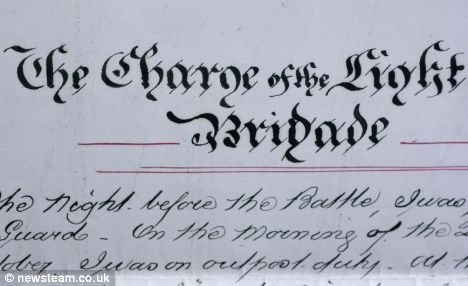 The Charge of the Light
Brigade
he Night before the Battle, I was,
Guard - On the Morning of the 2
tober I was on outpost duty. At th
© newsteam.co.uk